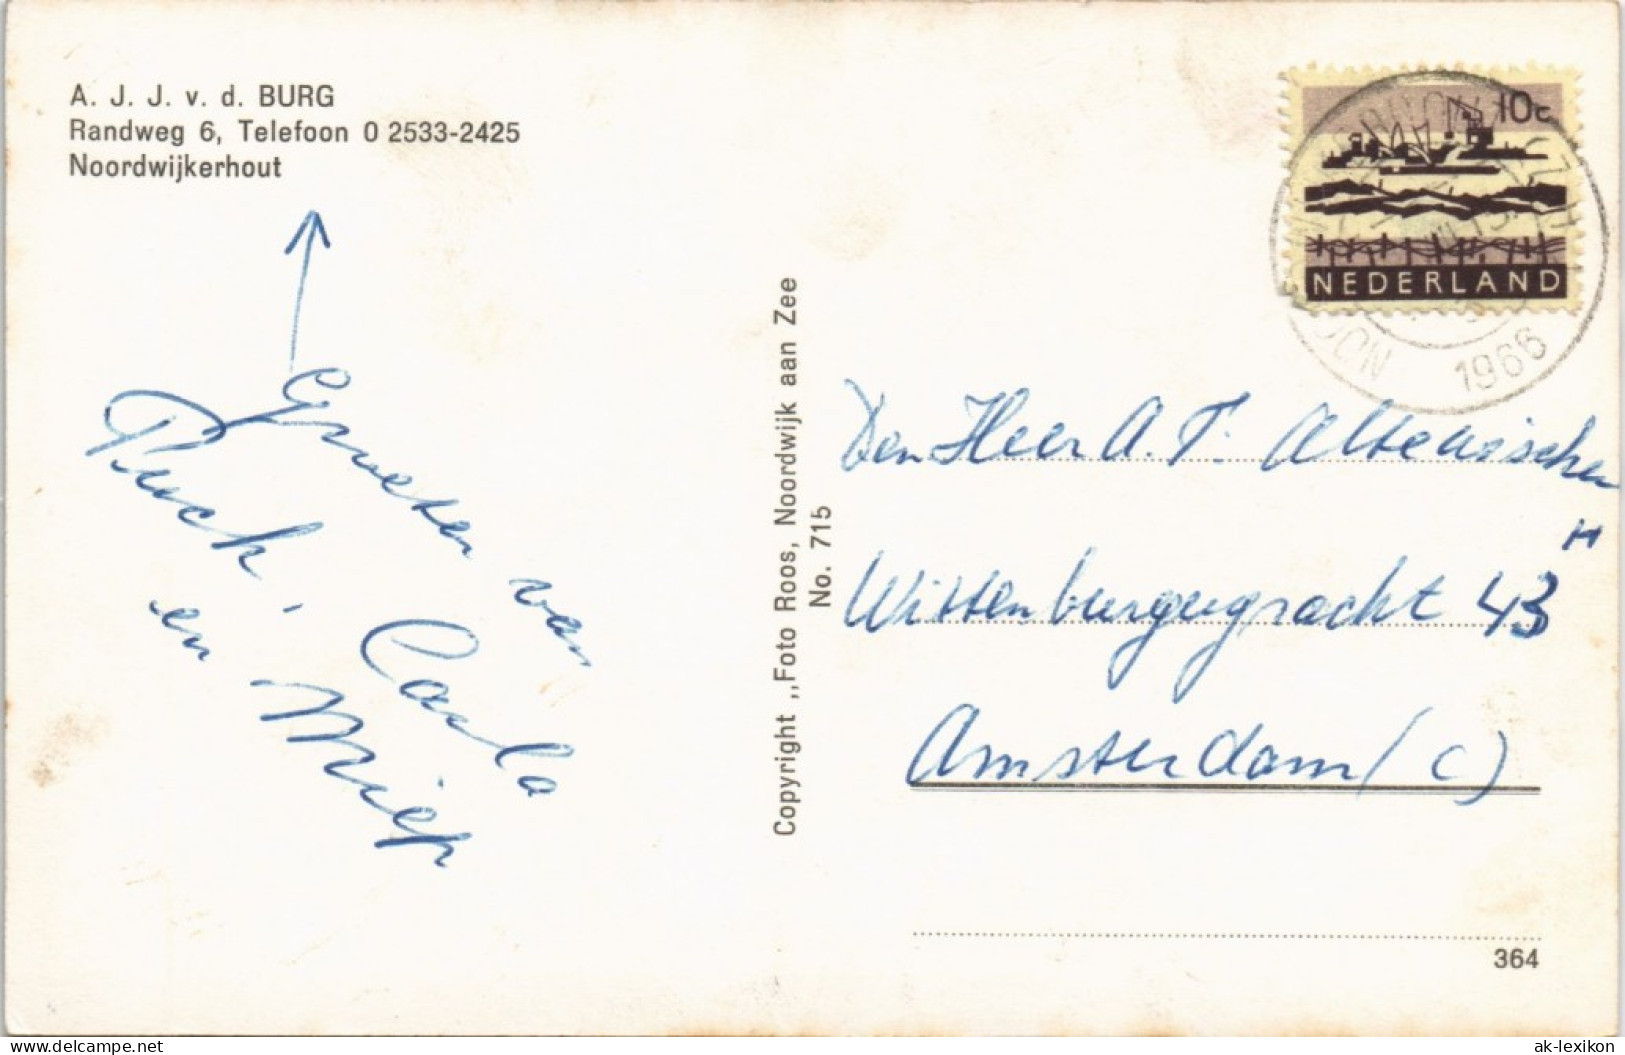 A. J. J. v. d. BURG
Randweg 6, Telefoon 0 2533-2425
Noordwijkerhout
Groeten van
Puck, Carla
en Miep
Copyright ,,Foto Roos, Noordwijk aan Zee
No. 715
10c
NEDERLAND
1966
Den Heer A. T. Altenisscher
Wittenburgergracht 43 H
Amsterdam (C)
364
www.delcampe.net
ak-lexikon